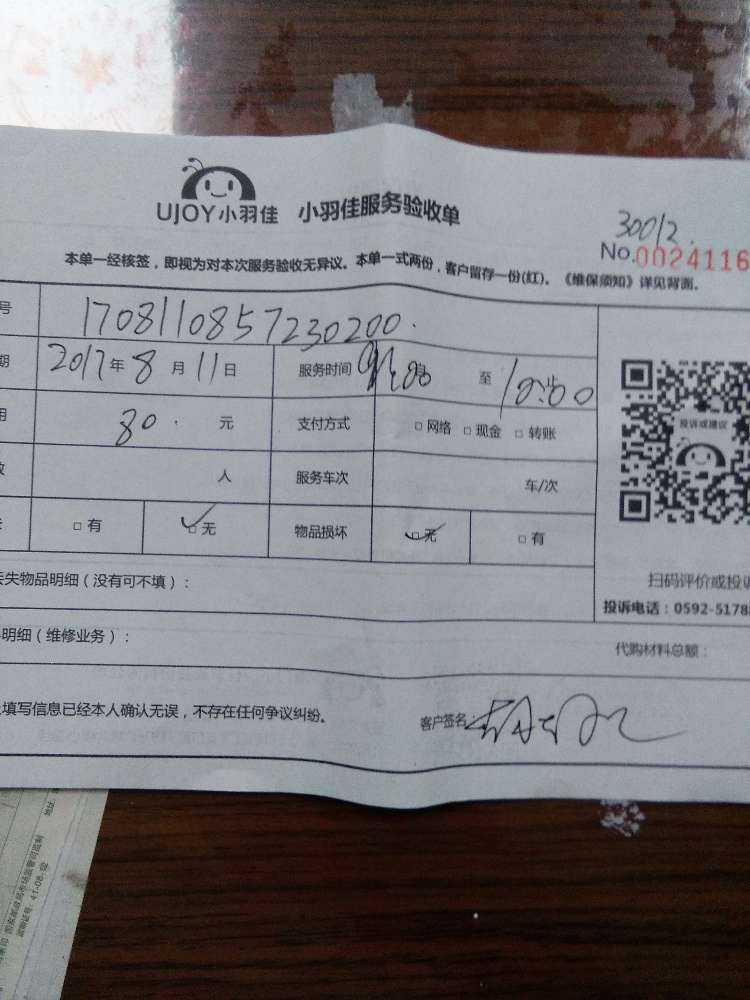 UJOY小羽佳 小羽佳服务验收单
30012
No.0024116
本单一经核签，即视为对本次服务验收无异议。本单一式两份，客户留存一份(红)。《维保须知》详见背面。
号 1708110857230200.
期 2017年8月11日 服务时间 至 10:00
用 80. 元 支付方式 □网络 □现金 □转账
投诉或建议
数 人 服务车次 车/次
□有 □无 物品损坏 □无 □有
丢失物品明细（没有可不填）：
扫码评价或投诉
投诉电话：0592-5178
明细（维修业务）：
代购材料总额：
上填写信息已经本人确认无误，不存在任何争议纠纷。
客户签名：